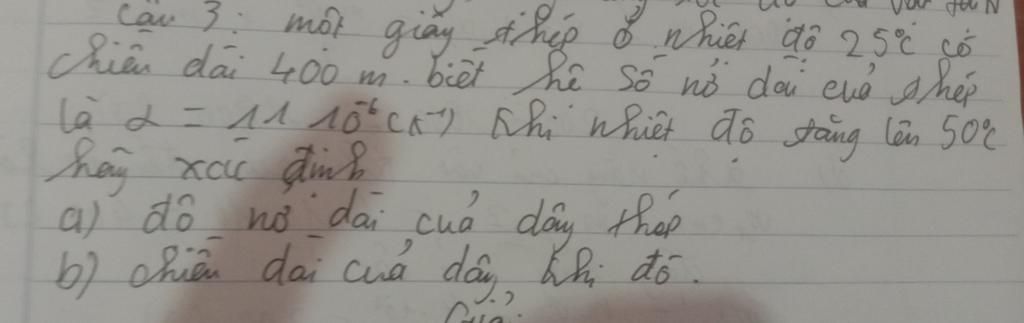 Câu 3: một giây thép ở nhiệt độ 25°C có
chiều dài 400 m. biết hệ số nở dài cuả thép
là α = 11 10⁻⁶ (K⁻¹) khi nhiệt độ tăng lên 50°C
hãy xác định
a) độ nở dài cuả dây thép
b) chiều dài cuả dây khi đó.